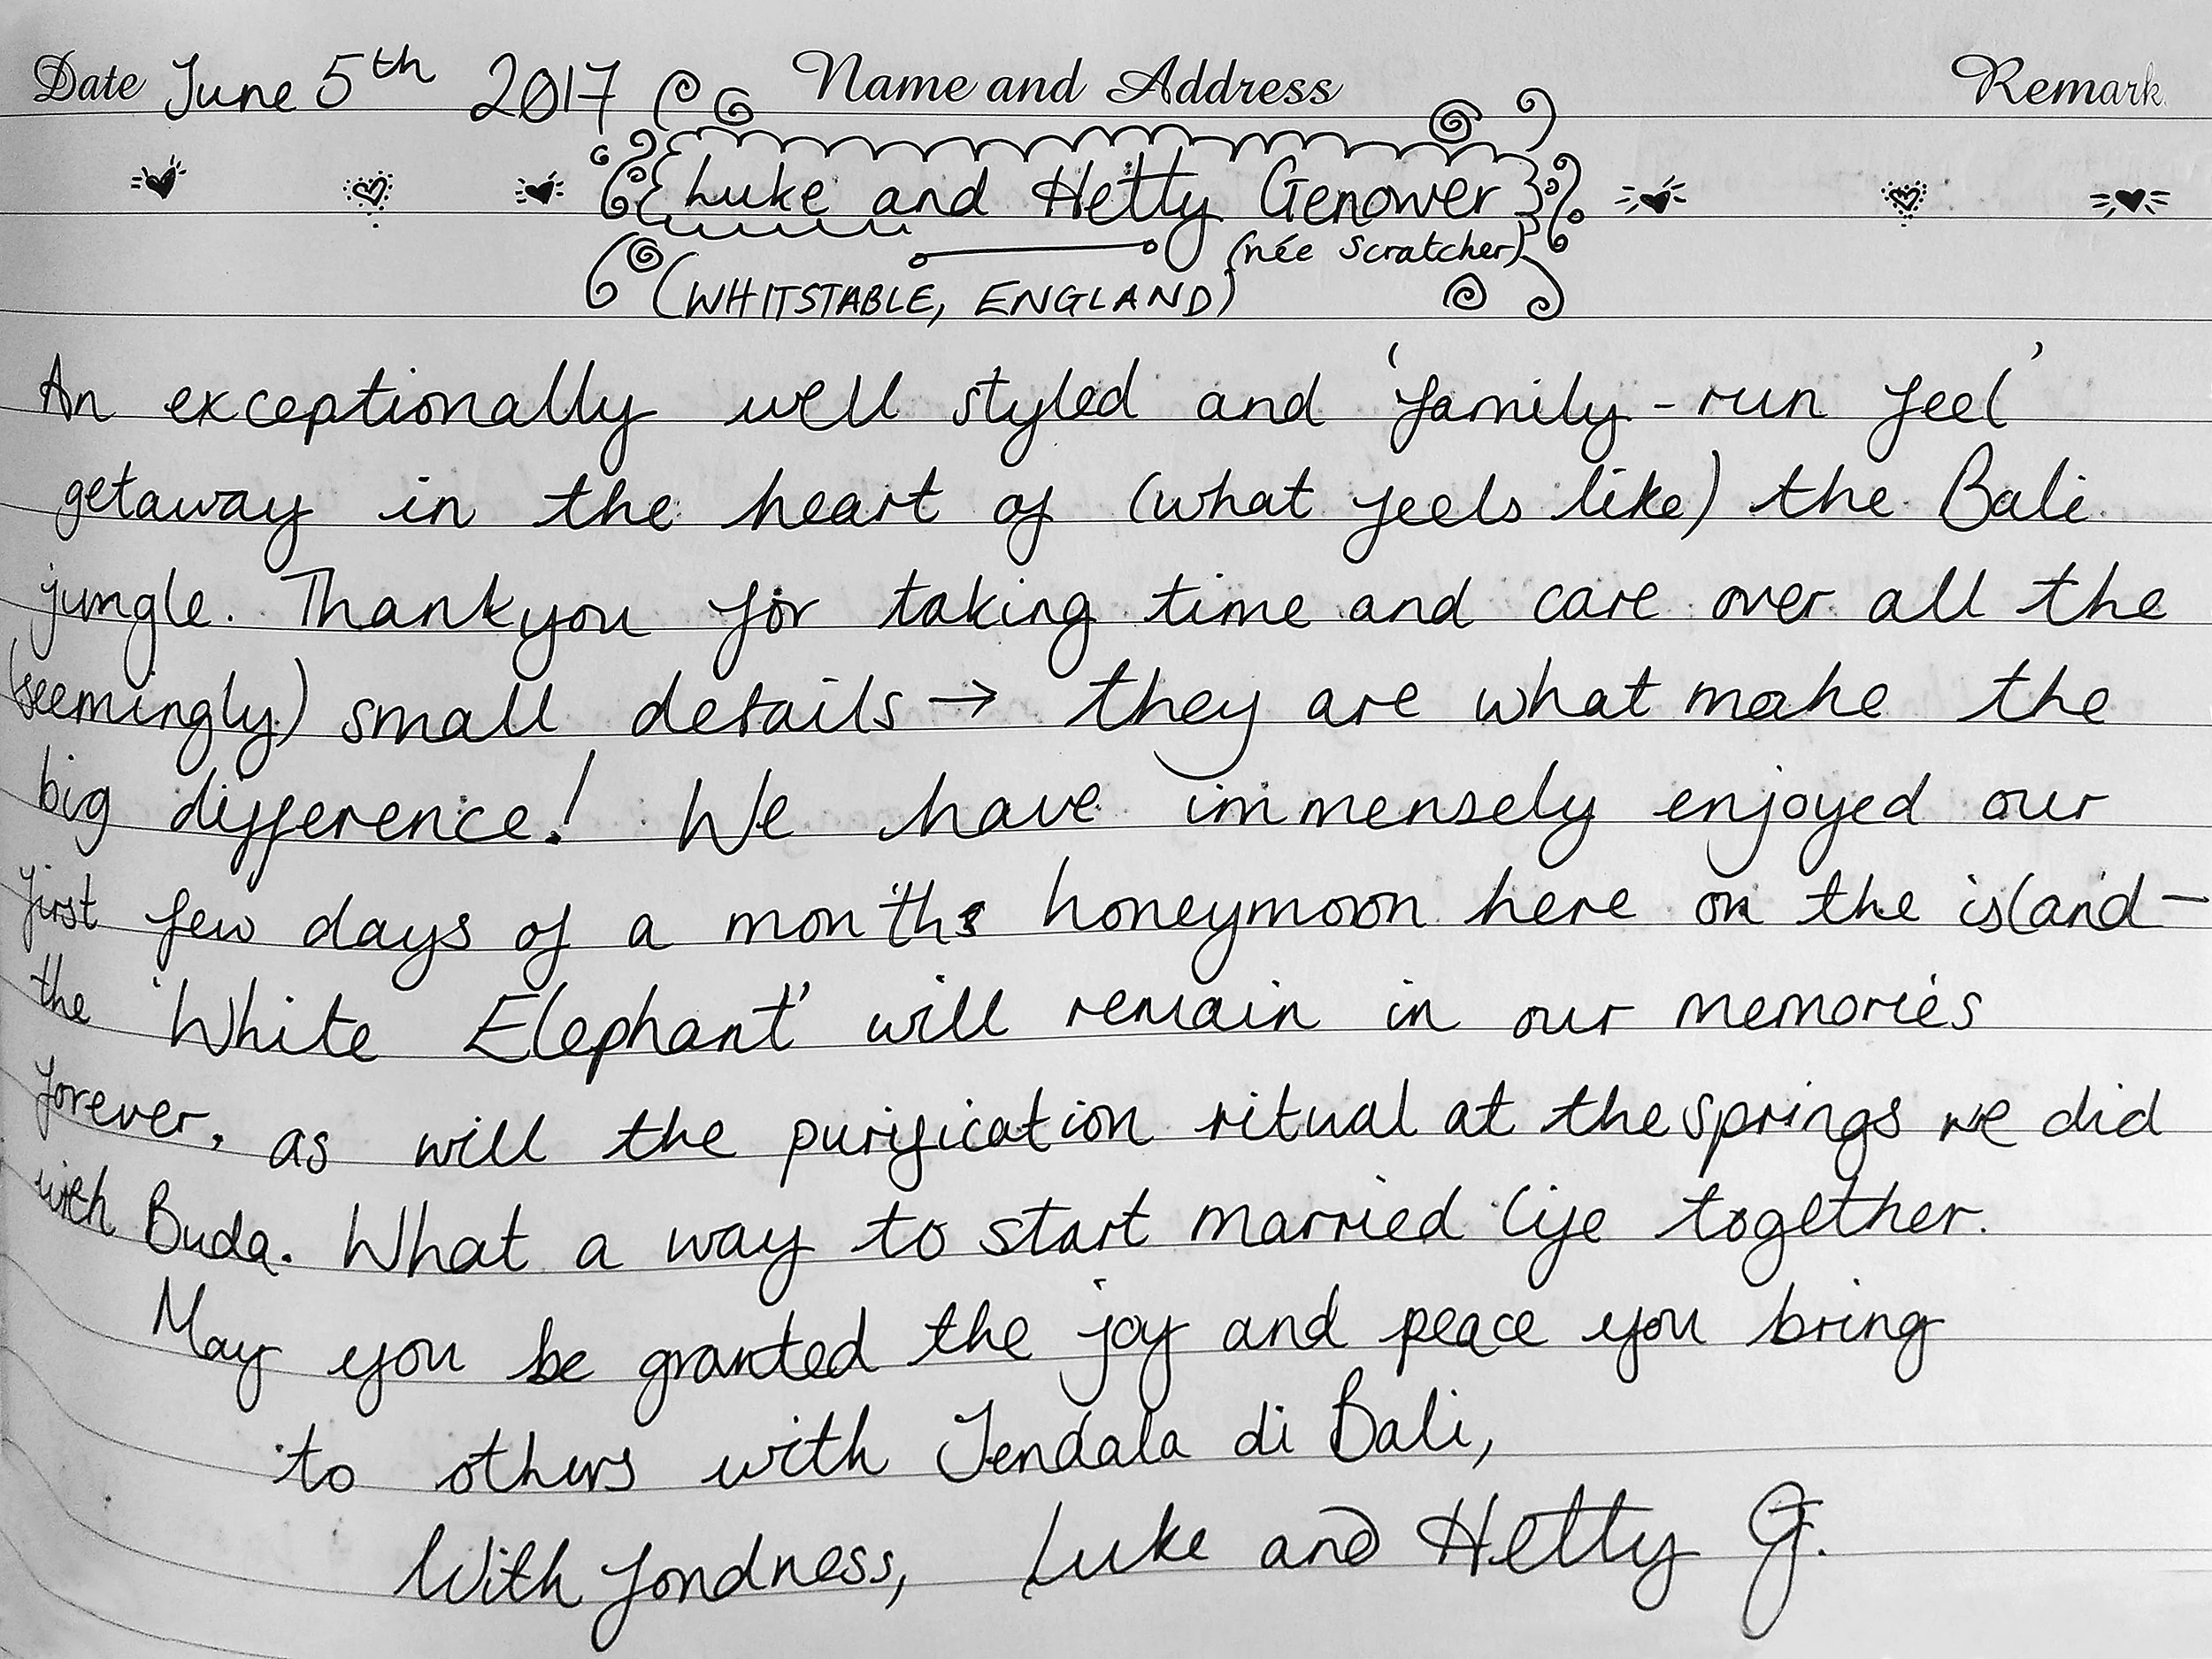 Date June 5th 2017 Name and Address Remark
Luke and Hetty Genower
(née Scratcher)
(WHITSTABLE, ENGLAND)
An exceptionally well styled and 'family-run feel'
getaway in the heart of (what feels like) the Bali
jungle. Thankyou for taking time and care over all the
(seemingly) small details → they are what make the
big difference! We have immensely enjoyed our
first few days of a months honeymoon here on the island-
the 'White Elephant' will remain in our memories
forever, as will the purification ritual at the springs we did
with Buda. What a way to start married life together.
May you be granted the joy and peace you bring
to others with Jendala di Bali,
With fondness, Luke and Hetty G.